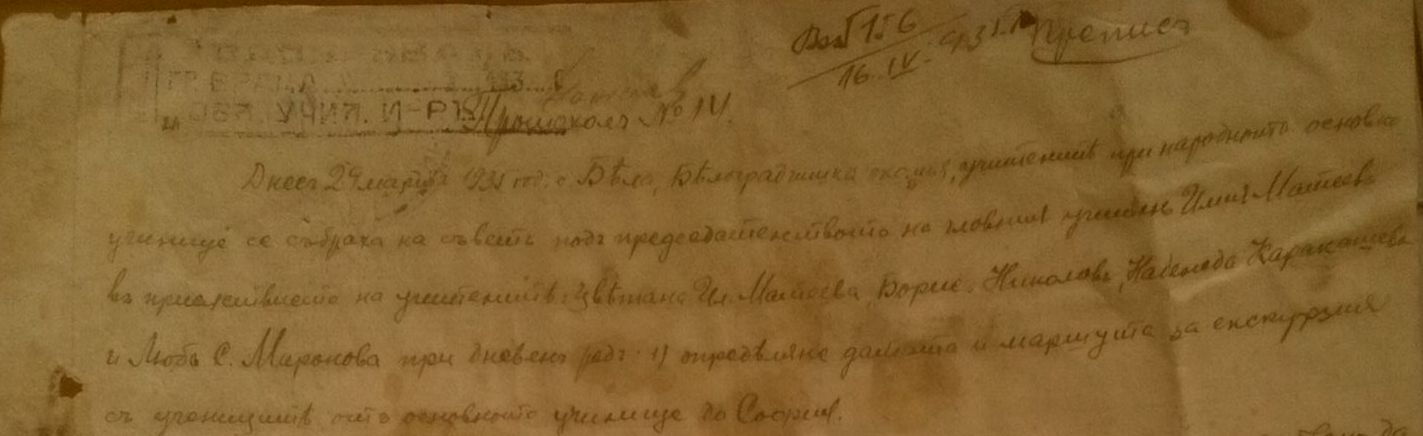 Вх № 156
16.IV.931 г. Преписъ
ОБЛ. УЧИЛ. И-РЪ
Протоколъ № IV.
Днесъ 29 мартъ 1931 год. с. Бѣла, Бѣлоградчишка околия, учителитѣ при народното основно
училище се събраха на съветъ подъ председателството на главния учителъ Матеевъ
въ присъствието на учителитѣ: Цвѣтана Ил. Матеева, Борисъ Николовъ, Надежда Каракашева
и Люба С. Миронова при дневенъ редъ: 1) опредѣляне датата и маршута за екскурзия
съ ученицитѣ отъ основното училище до София.